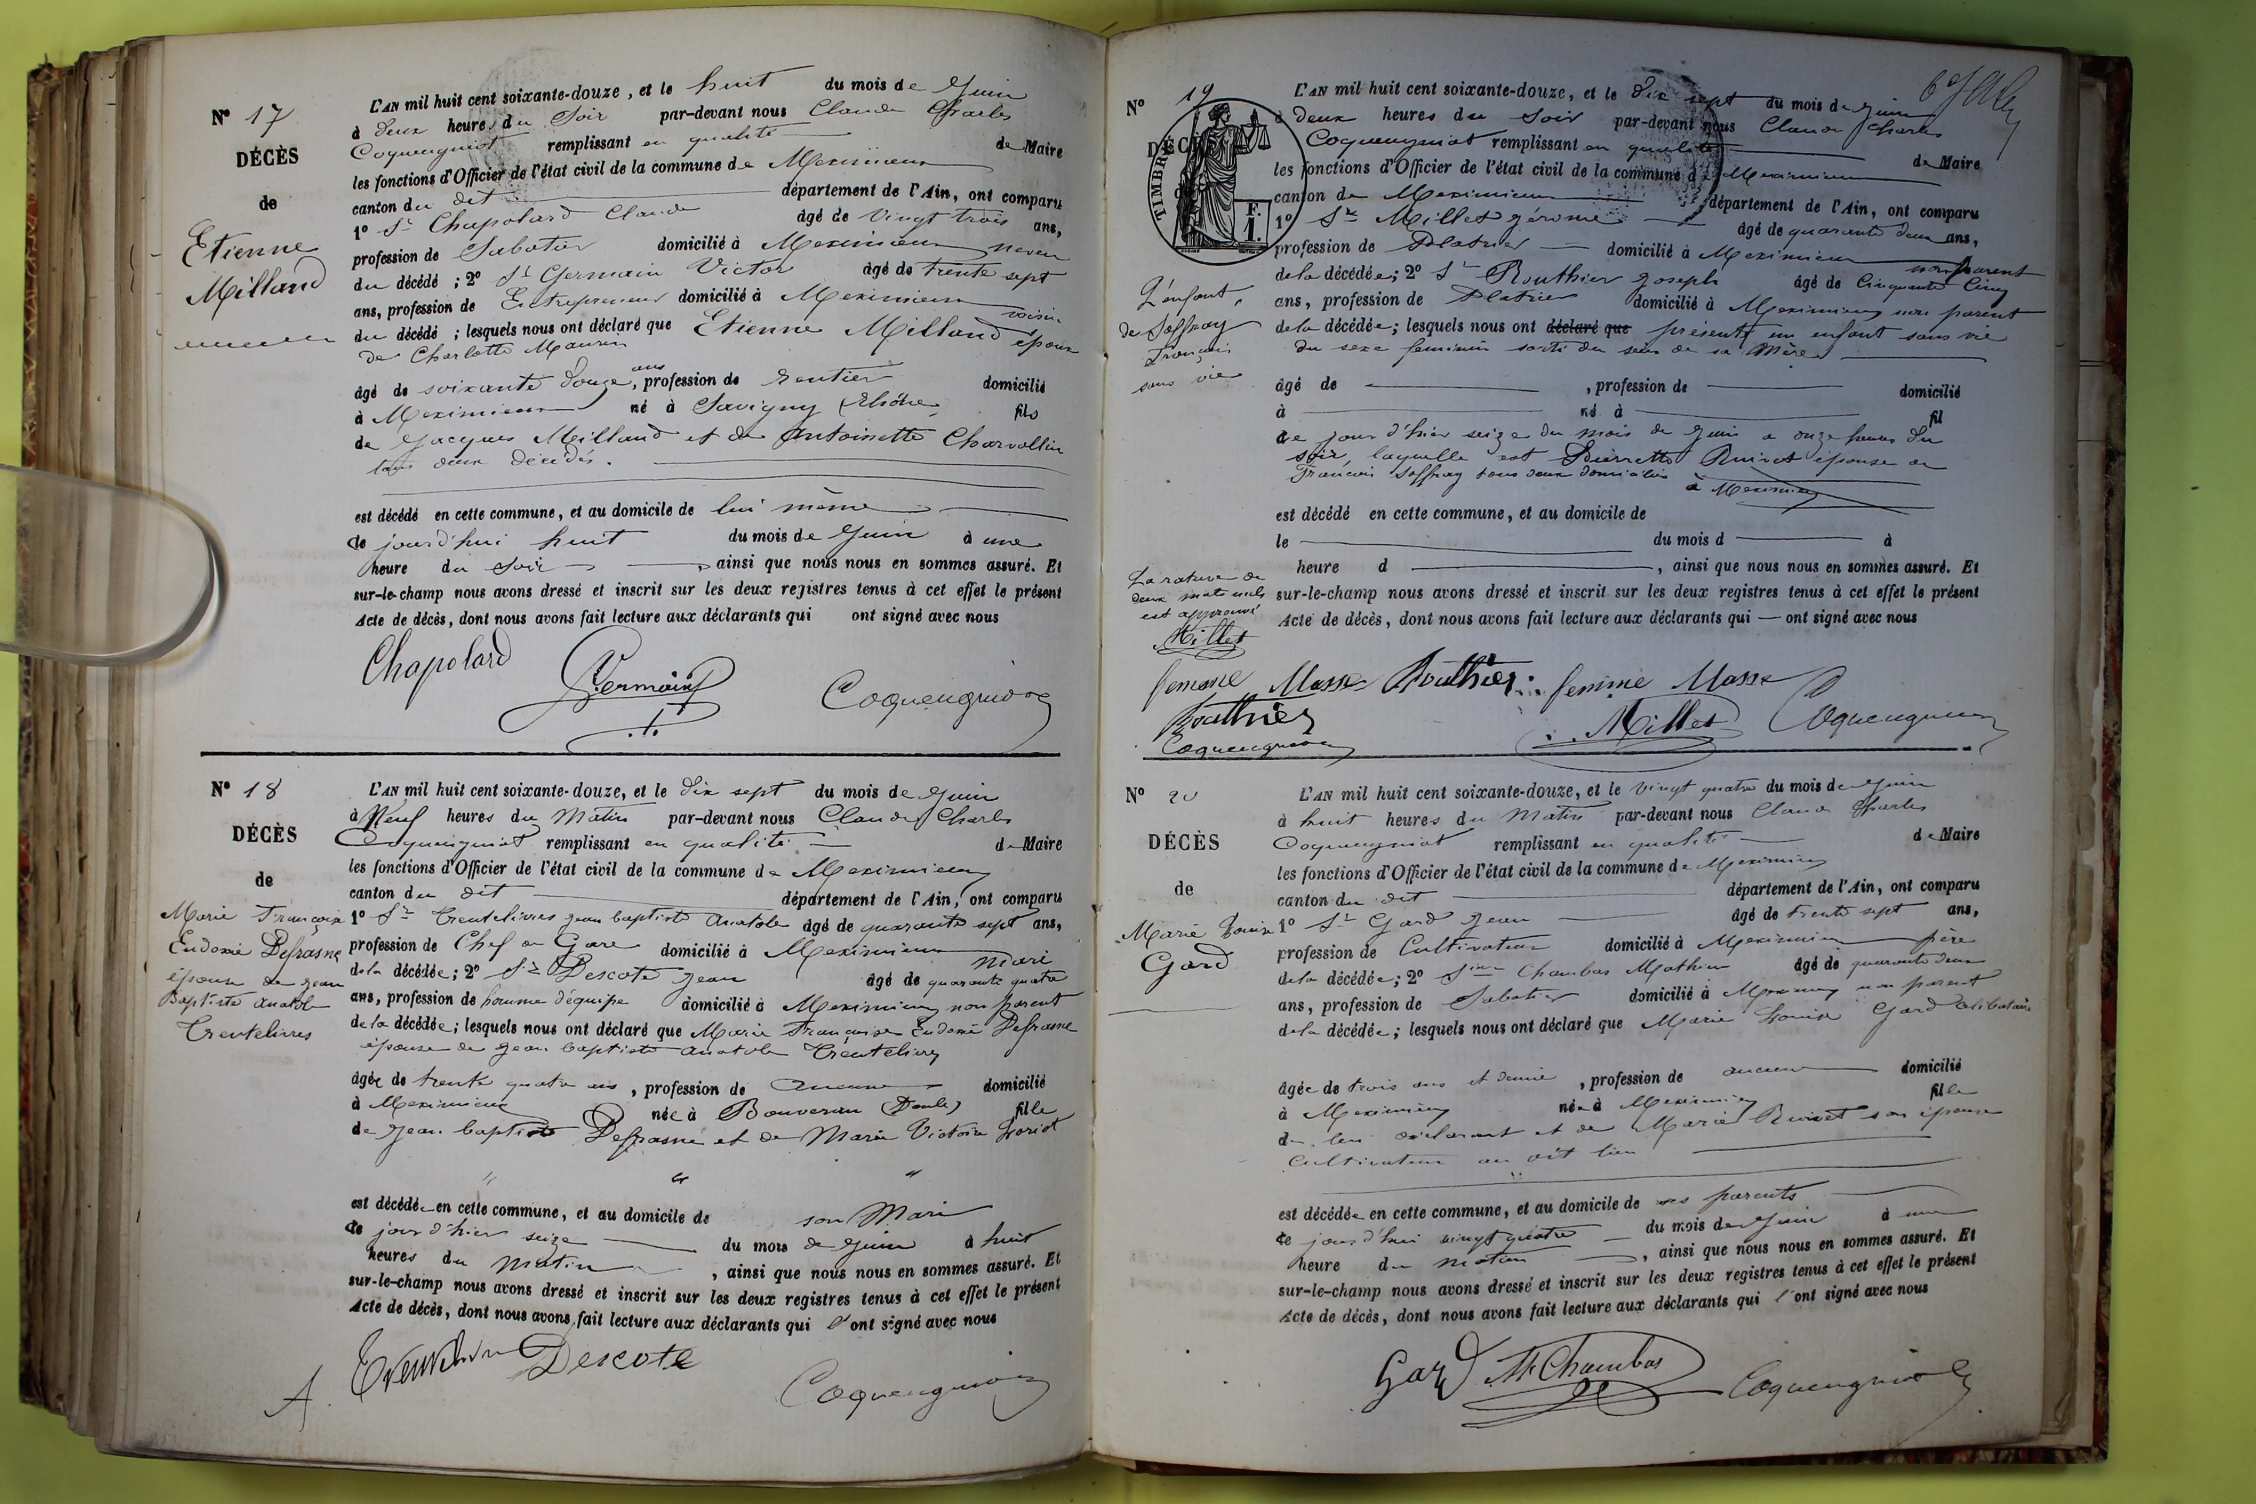 N° 17
DÉCÈS
de
Etienne
Milland
L'AN mil huit cent soixante-douze, et le huit du mois de Juin
à deux heures du Soir par-devant nous Claude Charles
Coqueugniot remplissant en qualité de Maire
les fonctions d'Officier de l'état civil de la commune de Meximieux
canton du dit département de l'Ain, ont comparu
1° Sr Chapolard Claude âgé de vingt trois ans,
profession de Sabotier domicilié à Meximieux neveu
du décédé ; 2° Sr Germain Victor âgé de trente sept
ans, profession de Entrepreneur domicilié à Meximieux voisin
du décédé ; lesquels nous ont déclaré que Etienne Milland époux
de Charlotte Mauran
âgé de soixante douze ans, profession de rentier domicilié
à Meximieux né à Savigny (Rhône) fils
de Jacques Milland et de Antoinette Charvollin
tous deux décédés.
est décédé en cette commune, et au domicile de lui même
ce jourd'hui huit du mois de Juin à une
heure du Soir, ainsi que nous nous en sommes assuré. Et
sur-le-champ nous avons dressé et inscrit sur les deux registres tenus à cet effet le présent
Acte de décès, dont nous avons fait lecture aux déclarants qui ont signé avec nous
Chapolard V. Germain Coqueugniot
N° 18
DÉCÈS
de
Marie Françoise
Eudoxie Defrasne
épouse de Jean
Baptiste Anatole
Trentelivres
L'AN mil huit cent soixante-douze, et le dix sept du mois de Juin
à Neuf heures du Matin par-devant nous Claude Charles
Coqueugniot remplissant en qualité de Maire
les fonctions d'Officier de l'état civil de la commune de Meximieux
canton du dit département de l'Ain, ont comparu
1° Sr Trentelivres Jean Baptiste Anatole âgé de quarante sept ans,
profession de Chef de Gare domicilié à Meximieux mari
de la décédée ; 2° Sr Descote Jean âgé de quarante quatre
ans, profession de homme d'équipe domicilié à Meximieux non parent
de la décédée ; lesquels nous ont déclaré que Marie Françoise Eudoxie Defrasne
épouse de Jean Baptiste Anatole Trentelivres
âgée de trente quatre ans, profession de aucune domicilié
à Meximieux née à Bouverans (Doubs) fille
de Jean Baptiste Defrasne et de Marie Victoire Loriot
" " "
est décédée en cette commune, et au domicile de son Mari
ce jour d'hier seize du mois de Juin à huit
heures du Matin, ainsi que nous nous en sommes assuré. Et
sur-le-champ nous avons dressé et inscrit sur les deux registres tenus à cet effet le présent
Acte de décès, dont nous avons fait lecture aux déclarants qui l'ont signé avec nous
A. Trentelivres Descote Coqueugniot
N° 19
DÉCÈS
de
TIMBRE
F.
1.
L'enfant
de Joffray
François
sans vie
L'AN mil huit cent soixante-douze, et le dix sept du mois de Juin
à deux heures du Soir par-devant nous Claude Charles
Coqueugniot remplissant en qualité de Maire
les fonctions d'Officier de l'état civil de la commune de Meximieux
canton de Meximieux département de l'Ain, ont comparu
1° Sr Millet Jérome âgé de quarante deux ans,
profession de Platrier domicilié à Meximieux non parent
de la décédée ; 2° Sr Routhier Joseph âgé de Cinquante Cinq
ans, profession de Platrier domicilié à Meximieux non parent
de la décédée ; lesquels nous ont déclaré que présenté un enfant sans vie
du sexe feminin sorti du sein de sa Mère
âgé de , profession de domicilié
à né à fil
ce jour d'hier seize du mois de Juin à onze heures du
soir, laquelle est Pierrette Ruivet épouse de
François Joffray tous deux domiciliés à Meximieux
est décédé en cette commune, et au domicile de
le du mois d à
heure d , ainsi que nous nous en sommes assuré. Et
sur-le-champ nous avons dressé et inscrit sur les deux registres tenus à cet effet le présent
Acte de décès, dont nous avons fait lecture aux déclarants qui ont signé avec nous
La rature de
deux mots nuls
est approuvé
Millet
femme Masse Routhier femme Masse
Routhier Millet Coqueugniot
Coqueugniot
N° 20
DÉCÈS
de
Marie Louise
Gard
L'AN mil huit cent soixante-douze, et le vingt quatre du mois de Juin
à huit heures du Matin par-devant nous Claude Charles
Coqueugniot remplissant en qualité de Maire
les fonctions d'Officier de l'état civil de la commune de Meximieux
canton du dit département de l'Ain, ont comparu
1° Sr Gard Jean âgé de trente sept ans,
profession de Cultivateur domicilié à Meximieux père
de la décédée ; 2° Sieur Chambas Mathieu âgé de quarante deux
ans, profession de Sabotier domicilié à Meximieux non parent
de la décédée ; lesquels nous ont déclaré que Marie Louise Gard célibataire
âgée de trois ans et demie, profession de aucune domicilié
à Meximieux née à Meximieux fille
du déclarant et de Marie Ruivet son épouse
cultivateur au dit lieu
est décédée en cette commune, et au domicile de ses parents
ce jourd'hui vingt quatre du mois de Juin à une
heure du matin, ainsi que nous nous en sommes assuré. Et
sur-le-champ nous avons dressé et inscrit sur les deux registres tenus à cet effet le présent
Acte de décès, dont nous avons fait lecture aux déclarants qui l'ont signé avec nous
Gard M. Chambas Coqueugniot